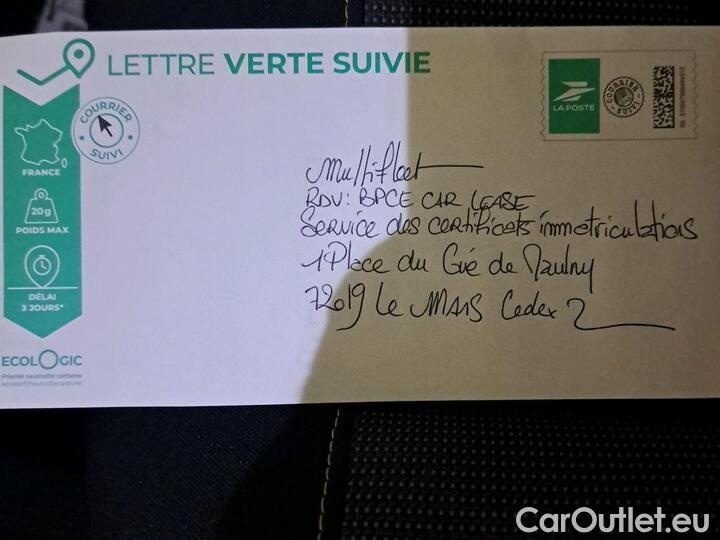 LETTRE VERTE SUIVIE
LA POSTE
COURRIER SUIVI
COURRIER SUIVI
FRANCE
20g
POIDS MAX
DÉLAI
3 JOURS*
ECOLOGIC
Priorité neutralité carbone
Multifleet
RDV: BPCE CAR LEASE
Service des certificats immatriculations
1 Place du Gué de Maulny
72019 Le MANS Cedex 2
CarOutlet.eu